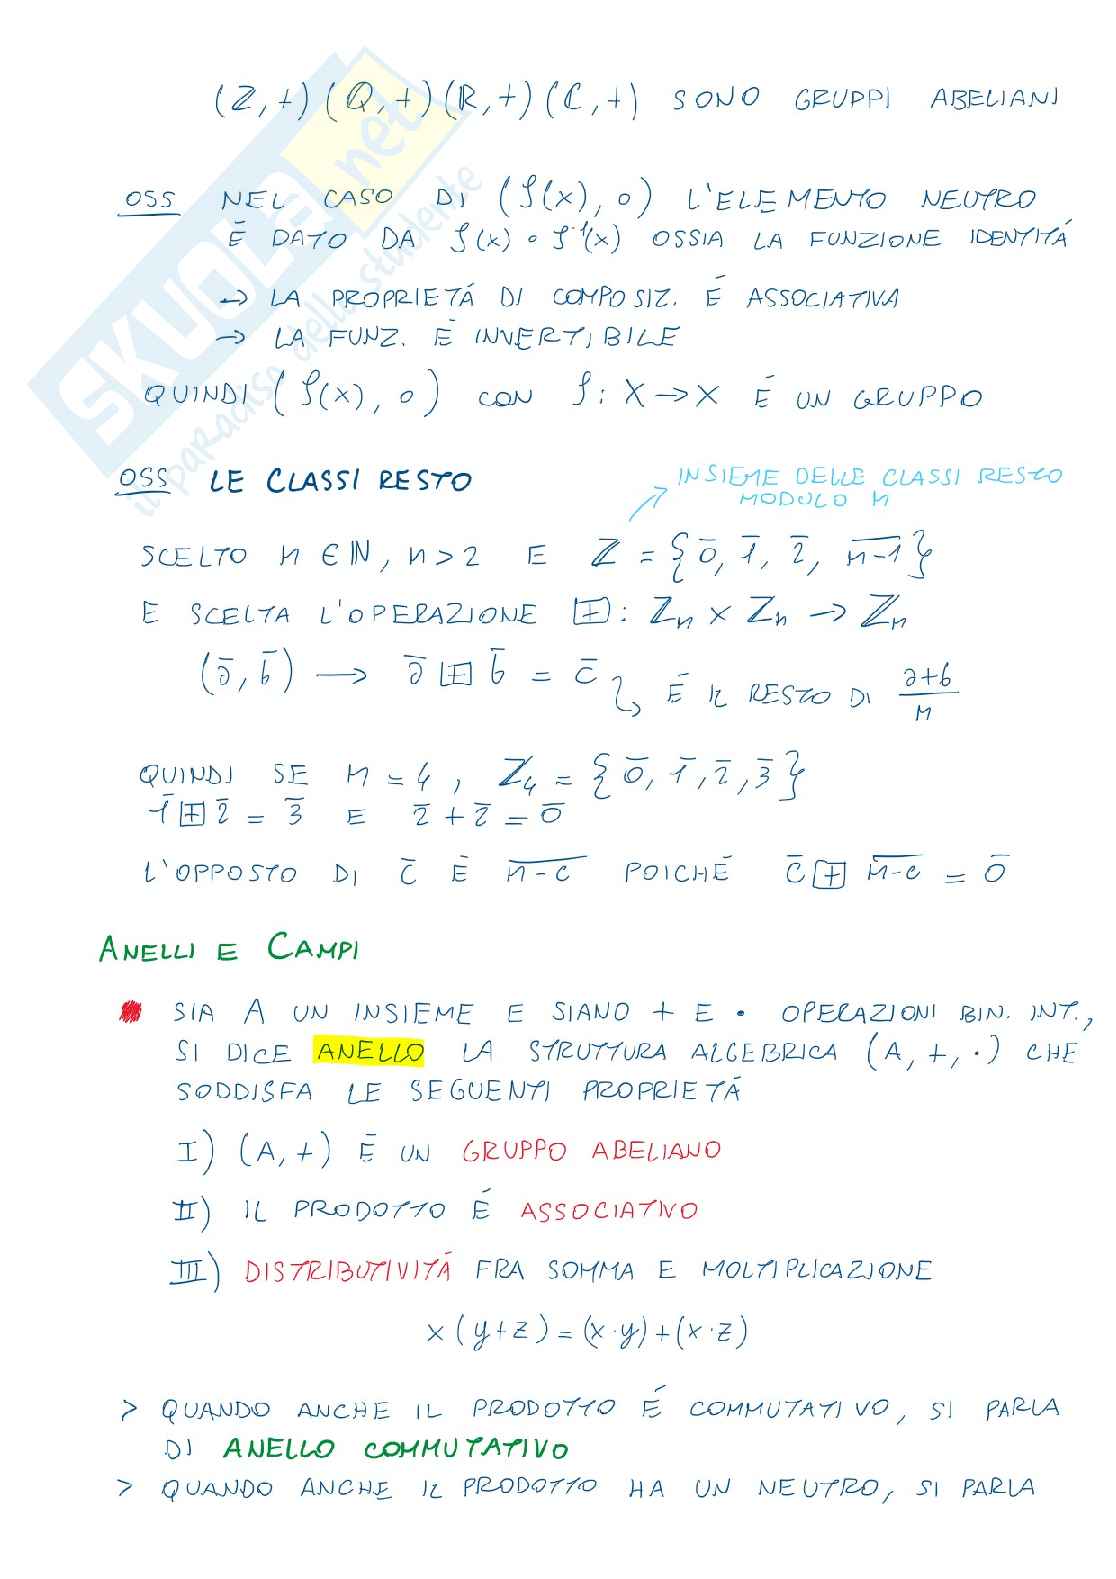 (ℤ,+)(ℚ,+)(ℝ,+)(ℂ,+) SONO GRUPPI ABELIANI
OSS NEL CASO DI (f(x),o) L'ELEMENTO NEUTRO
É DATO DA f(x)∘f⁻¹(x) OSSIA LA FUNZIONE IDENTITÁ
→ LA PROPRIETÁ DI COMPOSIZ. É ASSOCIATIVA
→ LA FUNZ. É INVERTIBILE
QUINDI (f(x),o) CON f: X→X É UN GRUPPO
OSS LE CLASSI RESTO
INSIEME DELLE CLASSI RESTO
MODULO n
SCELTO n ∈ ℕ, n>2 E ℤ = {0̄, 1̄, 2̄, n̅-̅1̅}
E SCELTA L'OPERAZIONE ⊞: ℤn × ℤn → ℤn
(ā, b̄) → ā ⊞ b̄ = c̄ ↳ É IL RESTO DI (a+b)/n
QUINDI SE n=4, ℤ₄ = {0̄, 1̄, 2̄, 3̄}
1̄ ⊞ 2̄ = 3̄ E 2̄ + 2̄ = 0̄
L'OPPOSTO DI c̄ È n̅-̅c̅ POICHÉ c̄ ⊞ n̅-̅c̅ = 0̄
ANELLI E CAMPI
SIA A UN INSIEME E SIANO + E • OPERAZIONI BIN. INT.,
SI DICE ANELLO LA STRUTTURA ALGEBRICA (A, +, ·) CHE
SODDISFA LE SEGUENTI PROPRIETÁ
I) (A,+) É UN GRUPPO ABELIANO
II) IL PRODOTTO É ASSOCIATIVO
III) DISTRIBUTIVITÁ FRA SOMMA E MOLTIPLICAZIONE
x(y+z)=(x·y)+(x·z)
> QUANDO ANCHE IL PRODOTTO É COMMUTATIVO, SI PARLA
DI ANELLO COMMUTATIVO
> QUANDO ANCHE IL PRODOTTO HA UN NEUTRO, SI PARLA
SKUOLA.net
il paradiso dello studente